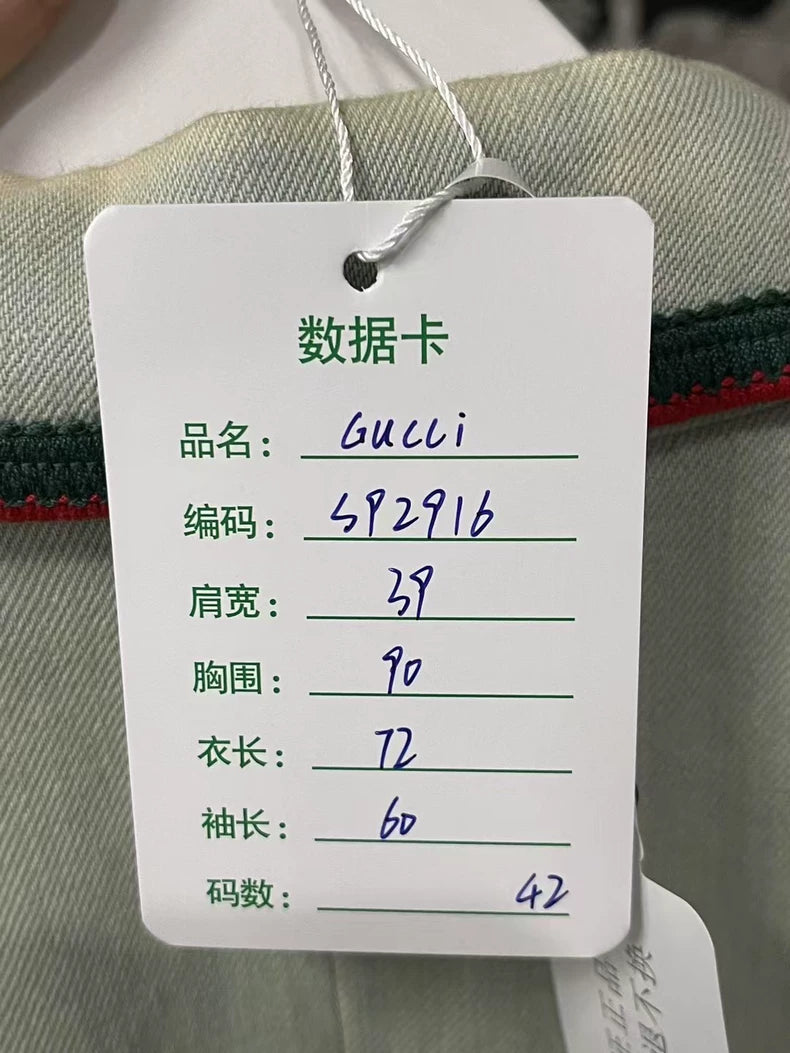 数据卡
品名: Gucci
编码: 592916
肩宽: 39
胸围: 90
衣长: 72
袖长: 60
码数: 42
正品
退不换